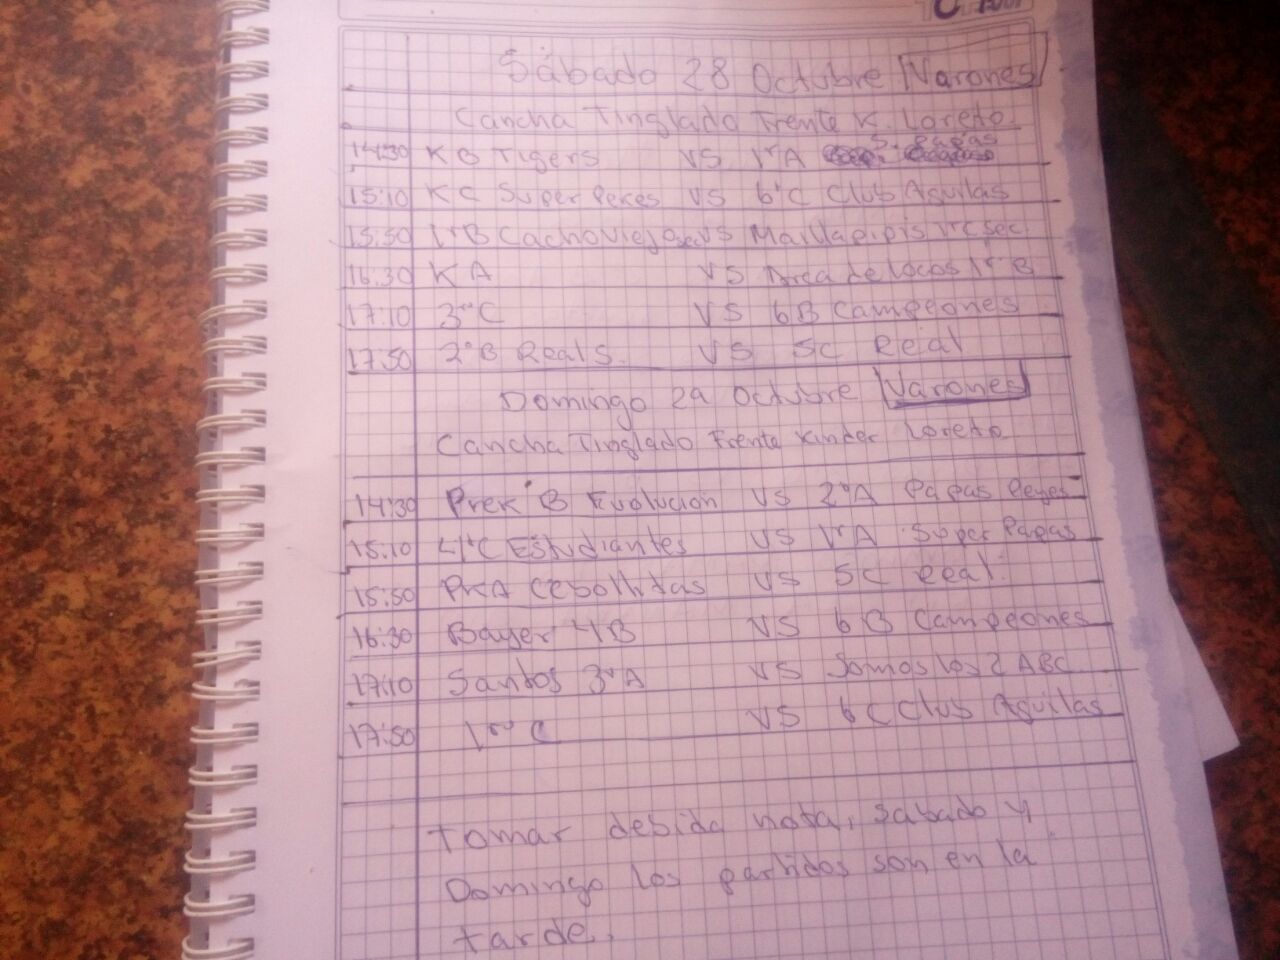 Sábado 28 Octubre Varones
Cancha Tinglado Frente K. Loreto
14:30 KB Tigers VS 1roA S. Papas
15:10 KC Super Peres VS 6°C Club Aguilas
15:50 1roB Cachoviejo sec VS Maillapipis 1roC sec.
16:30 KA VS Arca de locos 1ro B
17:10 3roC VS 6B Campeones
17:50 2°B Reals. VS 5C Real
Domingo 29 Octubre Varones
Cancha Tinglado Frente Kinder Loreto
14:30 Prek B Evolucion VS 2°A Papas Reyes
15:10 4°C Estudiantes VS 1roA Super Papas
15:50 PKA Cebollitas VS 5C Real.
16:30 Bayer 4B VS 6B Campeones
17:10 Santos 3roA VS Somos los 2 ABC
17:50 1ro C VS 6C Club Aguilas
Tomar debida nota, sabado y
Domingo los partidos son en la
tarde.